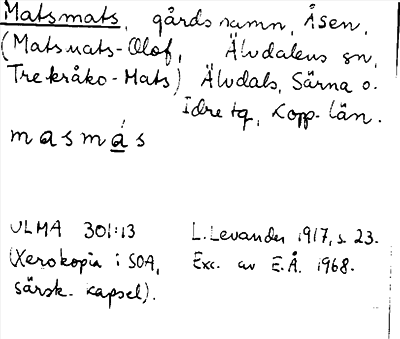 Matsmats, gårdsnamn, Åsen,
(Matsmats-Olof, Älvdalens sn,
Trekråko-Mats) Älvdals, Särna o.
Idre tg, Kopp. län.
masmás
ULMA 301:13 L. Levander 1917, s. 23.
(Xerokopia i SOA, Exc. av E.Å. 1968.
särsk. kapsel).